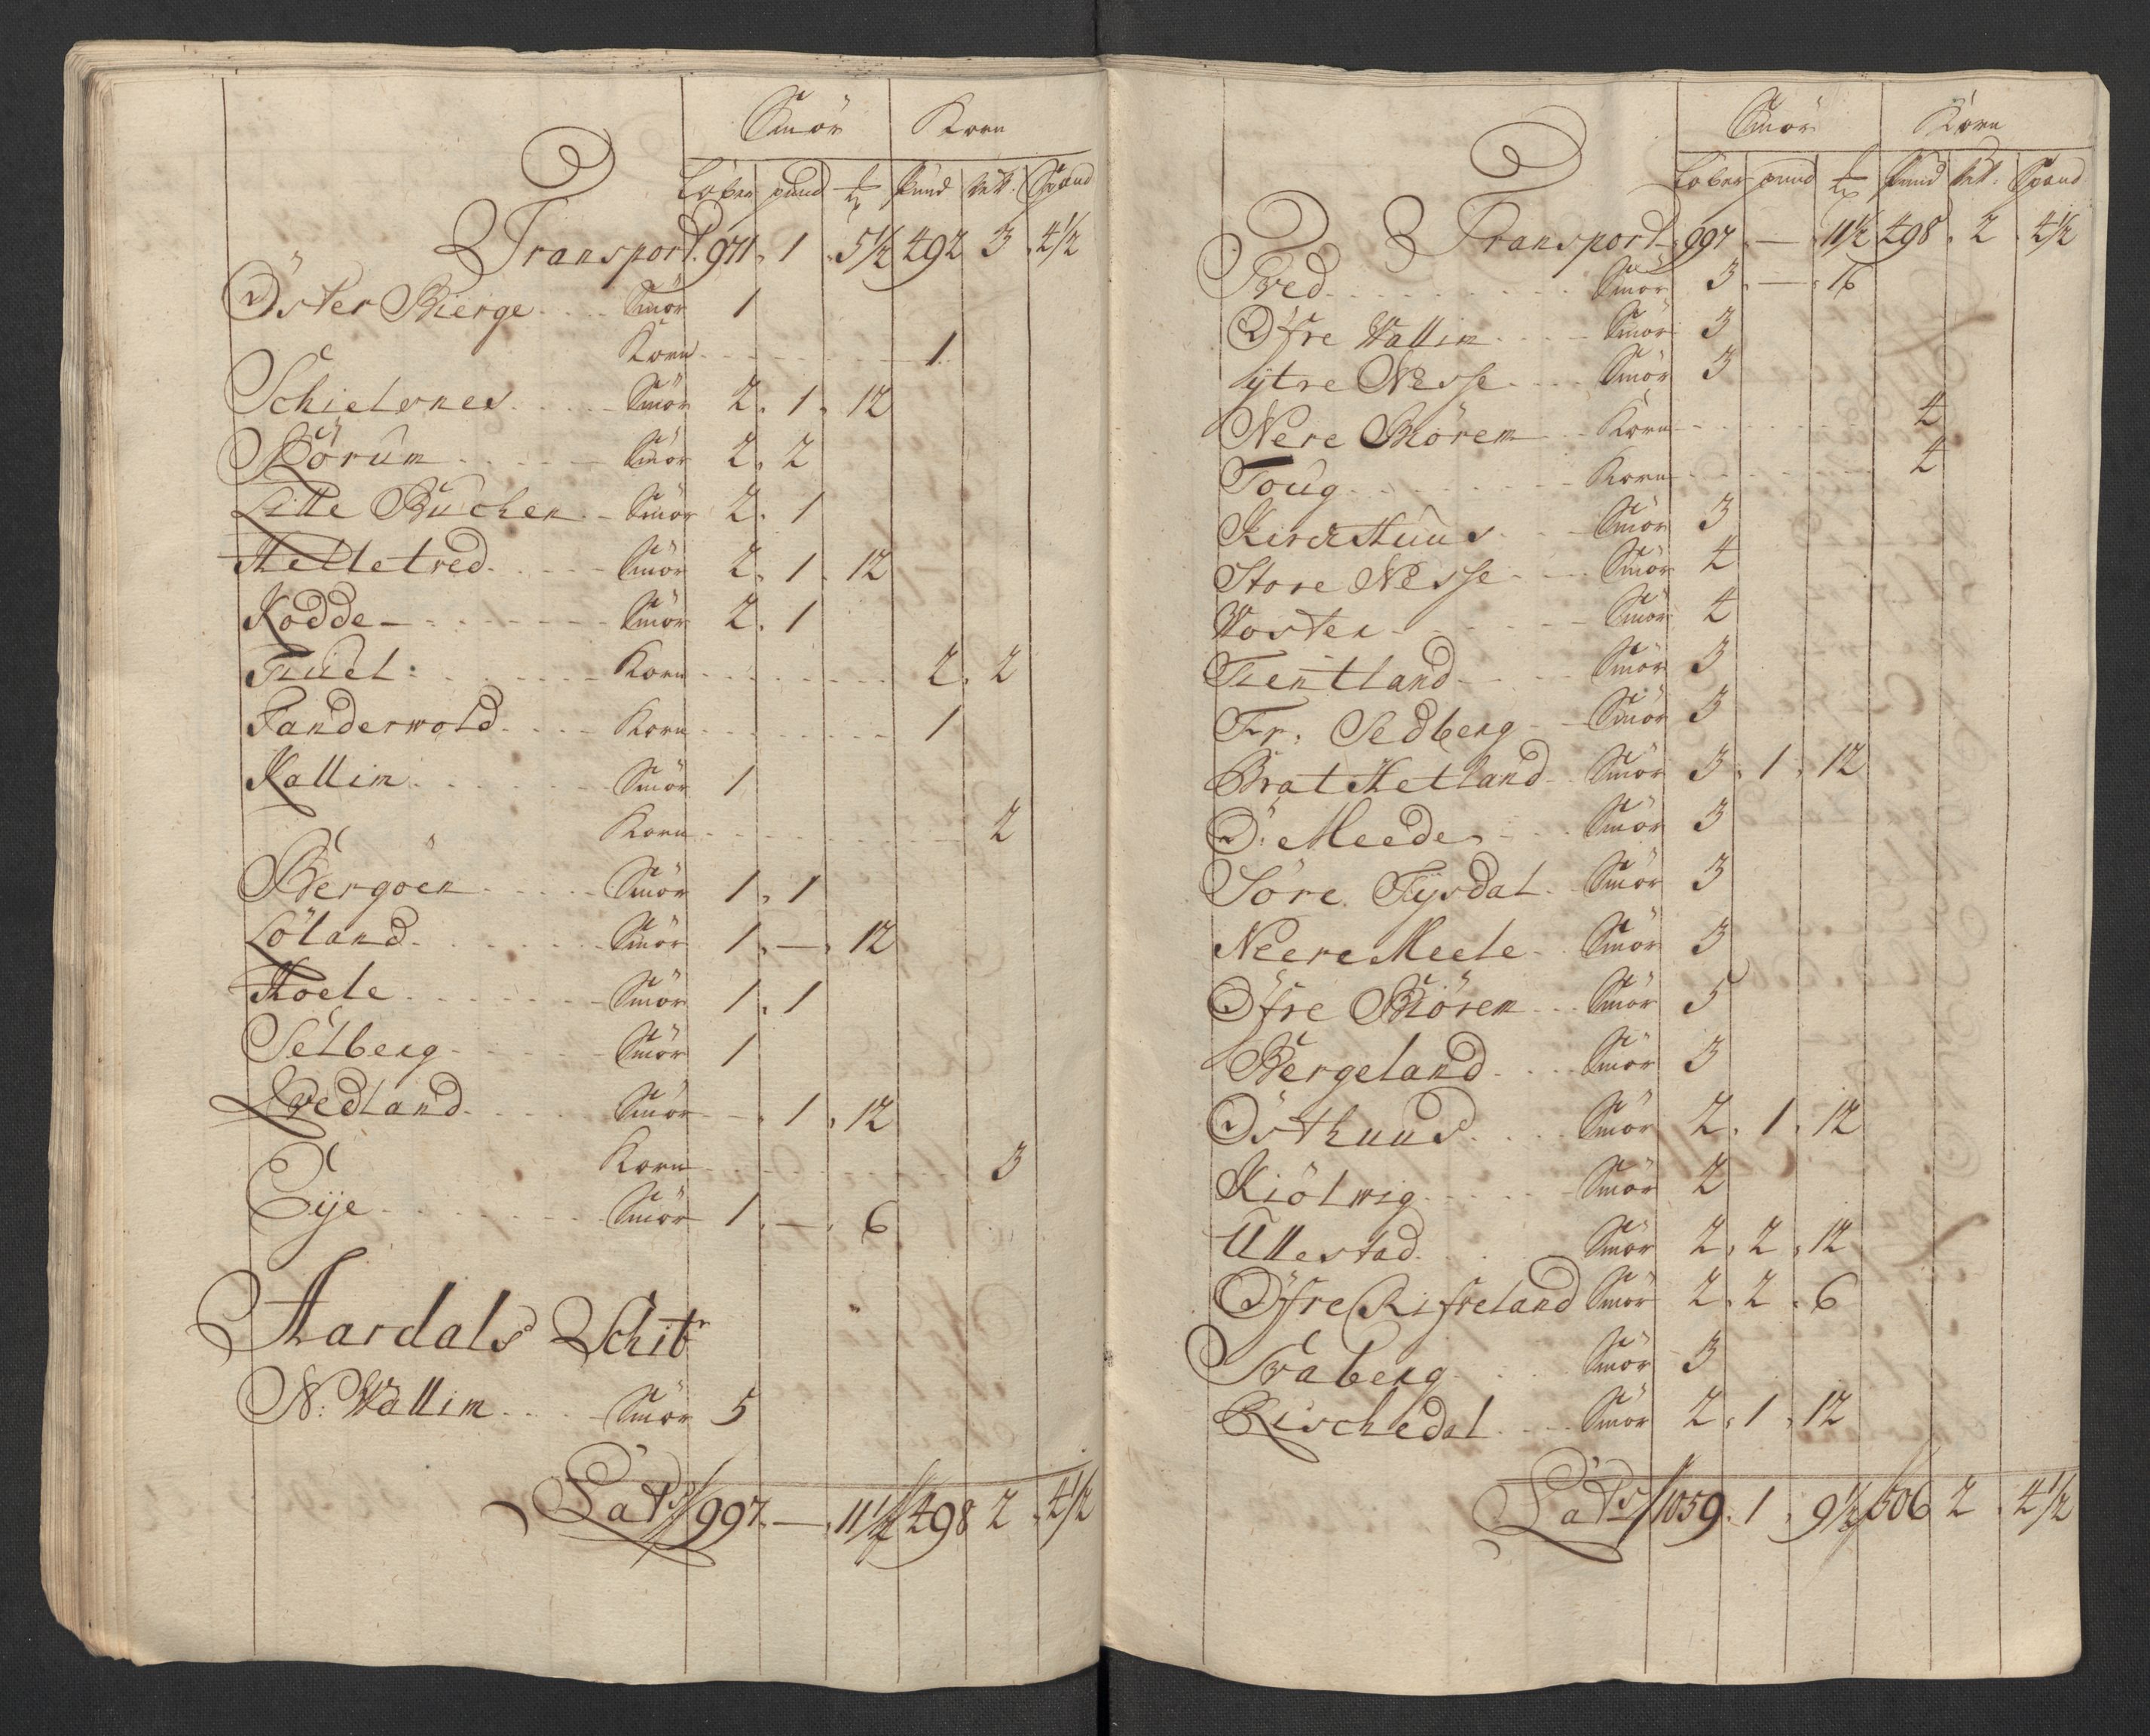 Smör Korn
Løber pund ℔ Pund Vett. Spand
Transport. 971. 1. 5½ 492 3. 4½
Öster Bierge .... Smör 1
Korn ........ 1.
Schielsnes ..... Smör 2. 1. 12
Börum ..... Smör 2. 2
Lille Buchen .. Smör 2. 1
Helletred ..... Smör 2. 1. 12
Kodde ...... Smör 2. 1
Fluel: ...... Korn ........ 2. 2
Fanderwold .... Korn ........ 1
Kallim ...... Smör 1
Korn ........ 2
Bergöen ..... Smör 1. 1
Löland ...... Smör 1. — . 12
Hoele ...... Smör 1. 1
Selberg ..... Smör 1
Qvedland ..... Smör — . 1. 12
Korn ........ 3
Eije ....... Smör 1. — . 6
Aardals Schibr
N: Wallim .... Smör 5
Lats 997. — . 11½ 498 2. 4½
Smör Korn
Løber pund ℔ Pund Vett. Spand
Transport 997. — . 11½ 498. 2. 4½
Tved ........ Smör 3. — . 16
Öfre Wallim .... Smör 3
ijtre Nesse .... Smör 3
Nere Biörem .. Korn ....... 4
Toug ....... Korn ....... 4
Kirchhuus ... Smör 3
Store Nesse ... Smör 4
Woster ...... Smör 4
Tientland .... Smör 3
Fr. Sedberg .. Smör 3
Brat Hetland .. Smör 3. 1. 12
Ö: Meede .... Smör 3
Söre Tijsdal .. Smör 3
Neere Meele .. Smör 3
Öfre Biörem ... Smör 5
Bergeland .... Smör 3
Östhuus .... Smör 2. 1. 12
Kiölwig ..... Smör 2
Ullestad ... Smör 2. 2. 12
Öfre Rifreland Smör 2. 2. 6
Svaberg .... Smör 3
Rischedal .... Smör 2. 1. 12
Lats 1059. 1. 9½ 506 2. 4½